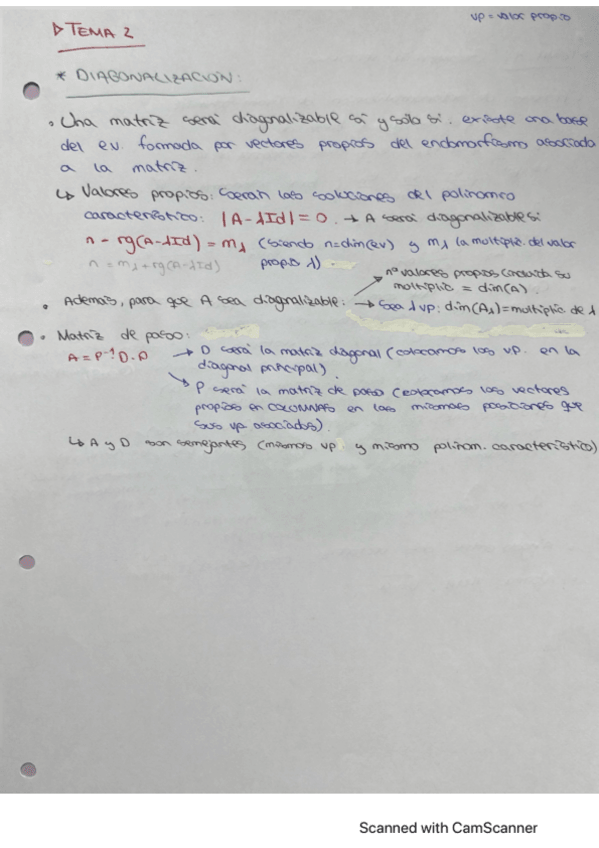 vp = valor propio
▷ TEMA 2
* DIAGONALIZACIÓN:
• Una matriz será diagonalizable si y sólo si existe una base
del e.v. formada por vectores propios del endomorfismo asociado
a la matriz.
↳ Valores propios: serán las soluciones del polinomio
característico: |A - λId| = 0. → A será diagonalizable si
n - rg(A-λId) = mλ (siendo n=dim(ev) y mλ la multiplic. del valor
propio λ).
n = mλ + rg(A-λId)
→ nº valores propios contando su
multiplic = dim(A).
• Además, para que A sea diagonalizable: → Sea λ vp: dim(Aλ)=multiplic de λ
• Matriz de paso:
A = P⁻¹ D · P → D será la matriz diagonal (colocamos los vp. en la
diagonal principal).
→ P será la matriz de paso (colocamos los vectores
propios en COLUMNAS en las mismas posiciones que
sus vp asociados).
↳ A y D son semejantes (mismos vp. y mismo polinom. característico)
Scanned with CamScanner